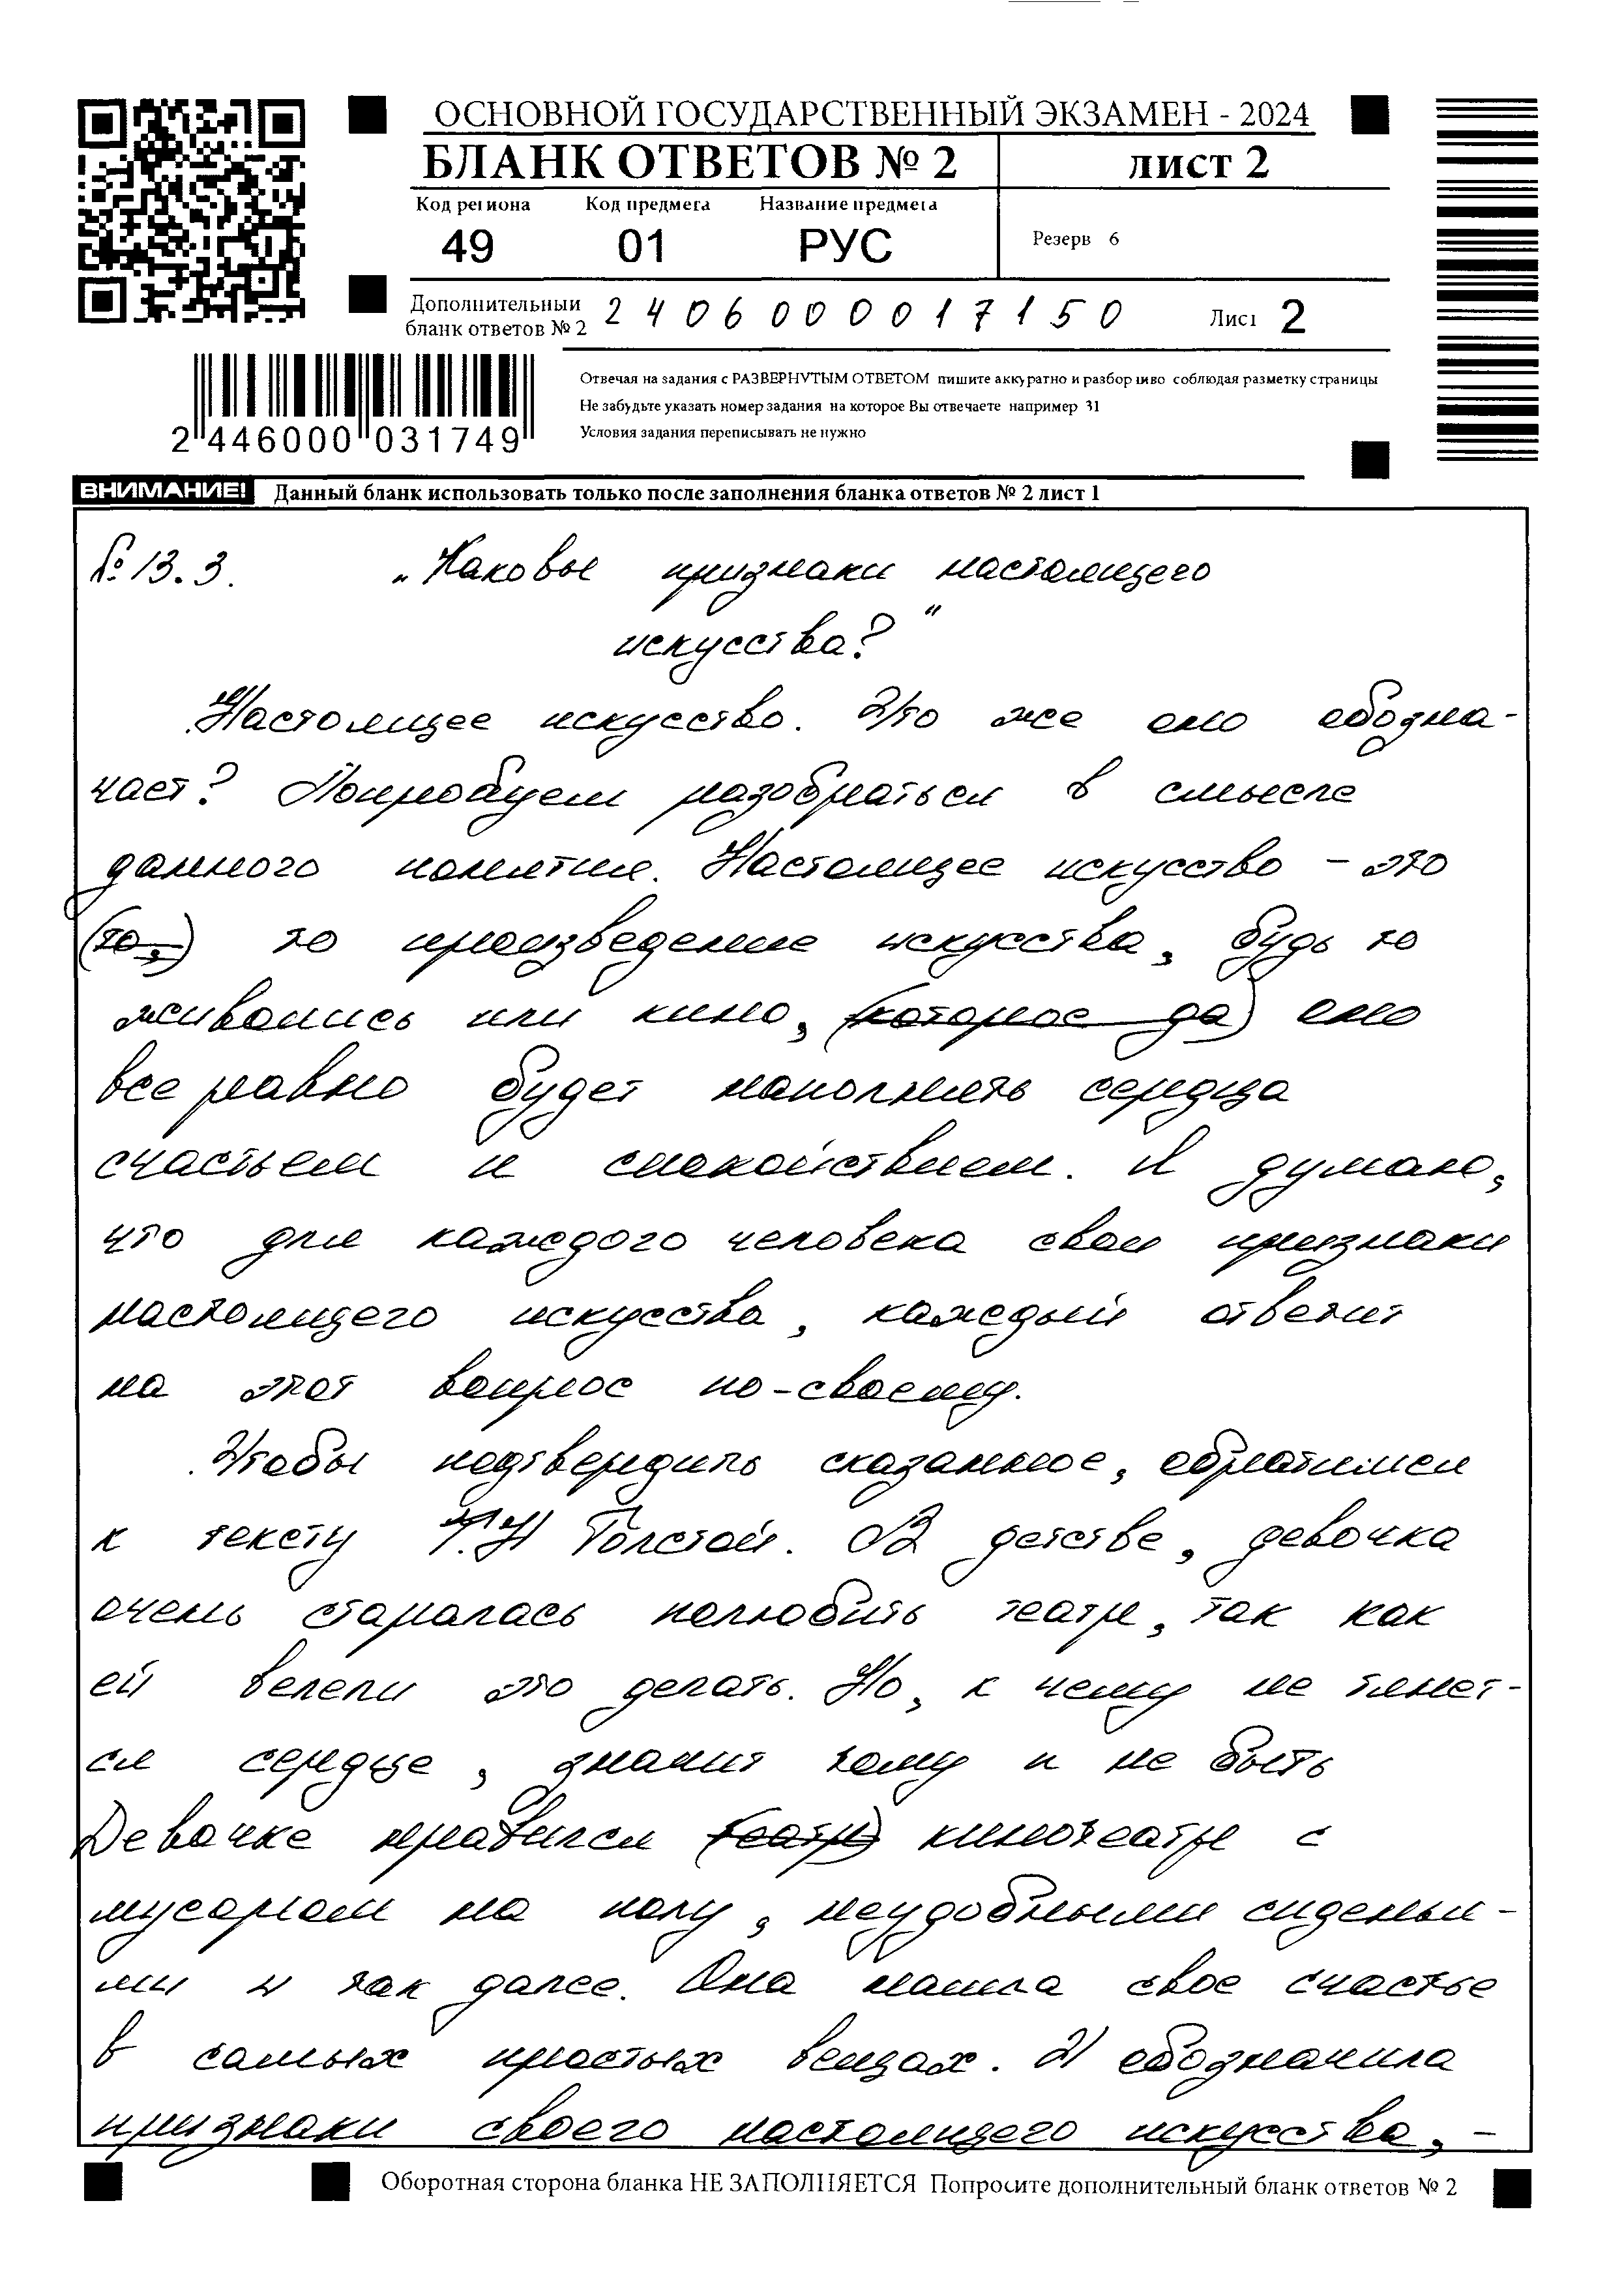 ОСНОВНОЙ ГОСУДАРСТВЕННЫЙ ЭКЗАМЕН - 2024
БЛАНК ОТВЕТОВ № 2 ЛИСТ 2
Код региона Код предмета Название предмета
49 01 РУС Резерв 6
Дополнительный
бланк ответов № 2 2406000017150 Лист 2
Отвечая на задания с РАЗВЕРНУТЫМ ОТВЕТОМ пишите аккуратно и разборчиво соблюдая разметку страницы
Не забудьте указать номер задания на которое Вы отвечаете например 31
Условия задания переписывать не нужно
2 446000 031749
ВНИМАНИЕ! Данный бланк использовать только после заполнения бланка ответов № 2 лист 1
№ 13.3. „Каковы признаки настоящего
искусства?"
Настоящее искусство. Что же оно обозна-
чает? Попробуем разобраться в смысле
данного понятия. Настоящее искусство – это
(то,) то произведение искусства, будь то
живопись или кино, (которое да) оно
все равно будет наполнять сердца
счастьем и спокойствием. Я думаю,
что для каждого человека свои признаки
настоящего искусства, каждый ответит
на этот вопрос по-своему.
Чтобы подтвердить сказанное, обратимся
к тексту Т.Н Толстой. В детстве, девочка
очень старалась полюбить театр, так как
ей велели это делать. Но, к чему не тянет-
ся сердце, значит тому и не быть
Девочке нравился (театр) кинотеатр с
мусором на полу, неудобными сиденья-
ми и так далее. Она нашла свое счастье
в самых простых вещах. И обозначила
признаки своего настоящего искусства, –
Оборотная сторона бланка НЕ ЗАПОЛНЯЕТСЯ Попросите дополнительный бланк ответов № 2